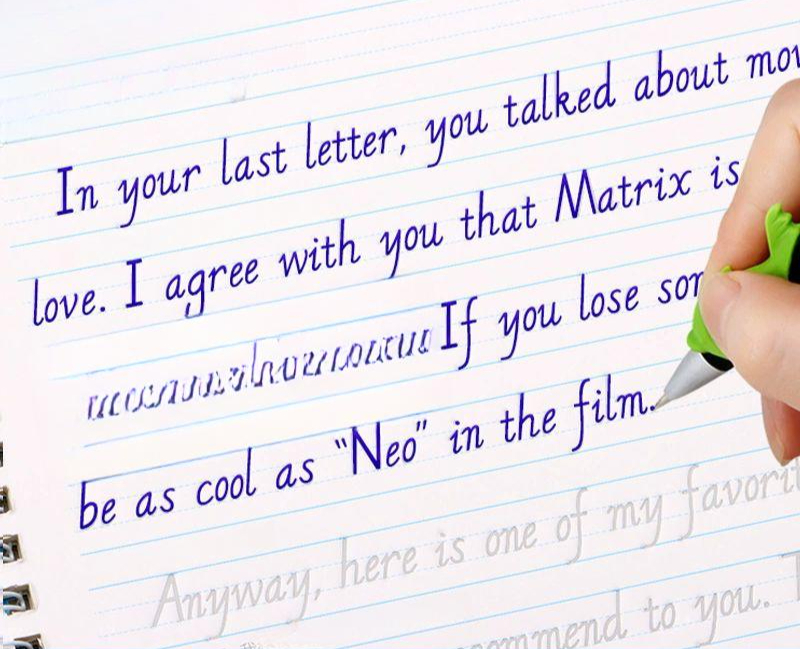 In your last letter, you talked about
love. I agree with you that Matrix is
If you lose
be as cool as “Neo” in the film.
Anyway, here is one of my
to you.